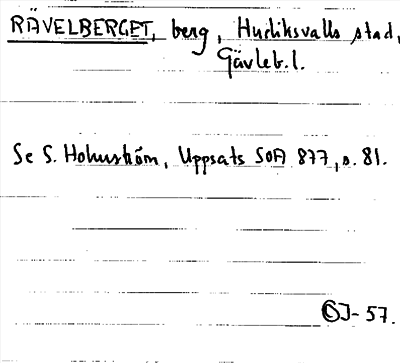 RÄVELBERGET, berg, Hudiksvalls stad,
Gävleb. l.
Se S. Holmström, Uppsats SOA 877, s. 81.
SJ-57.